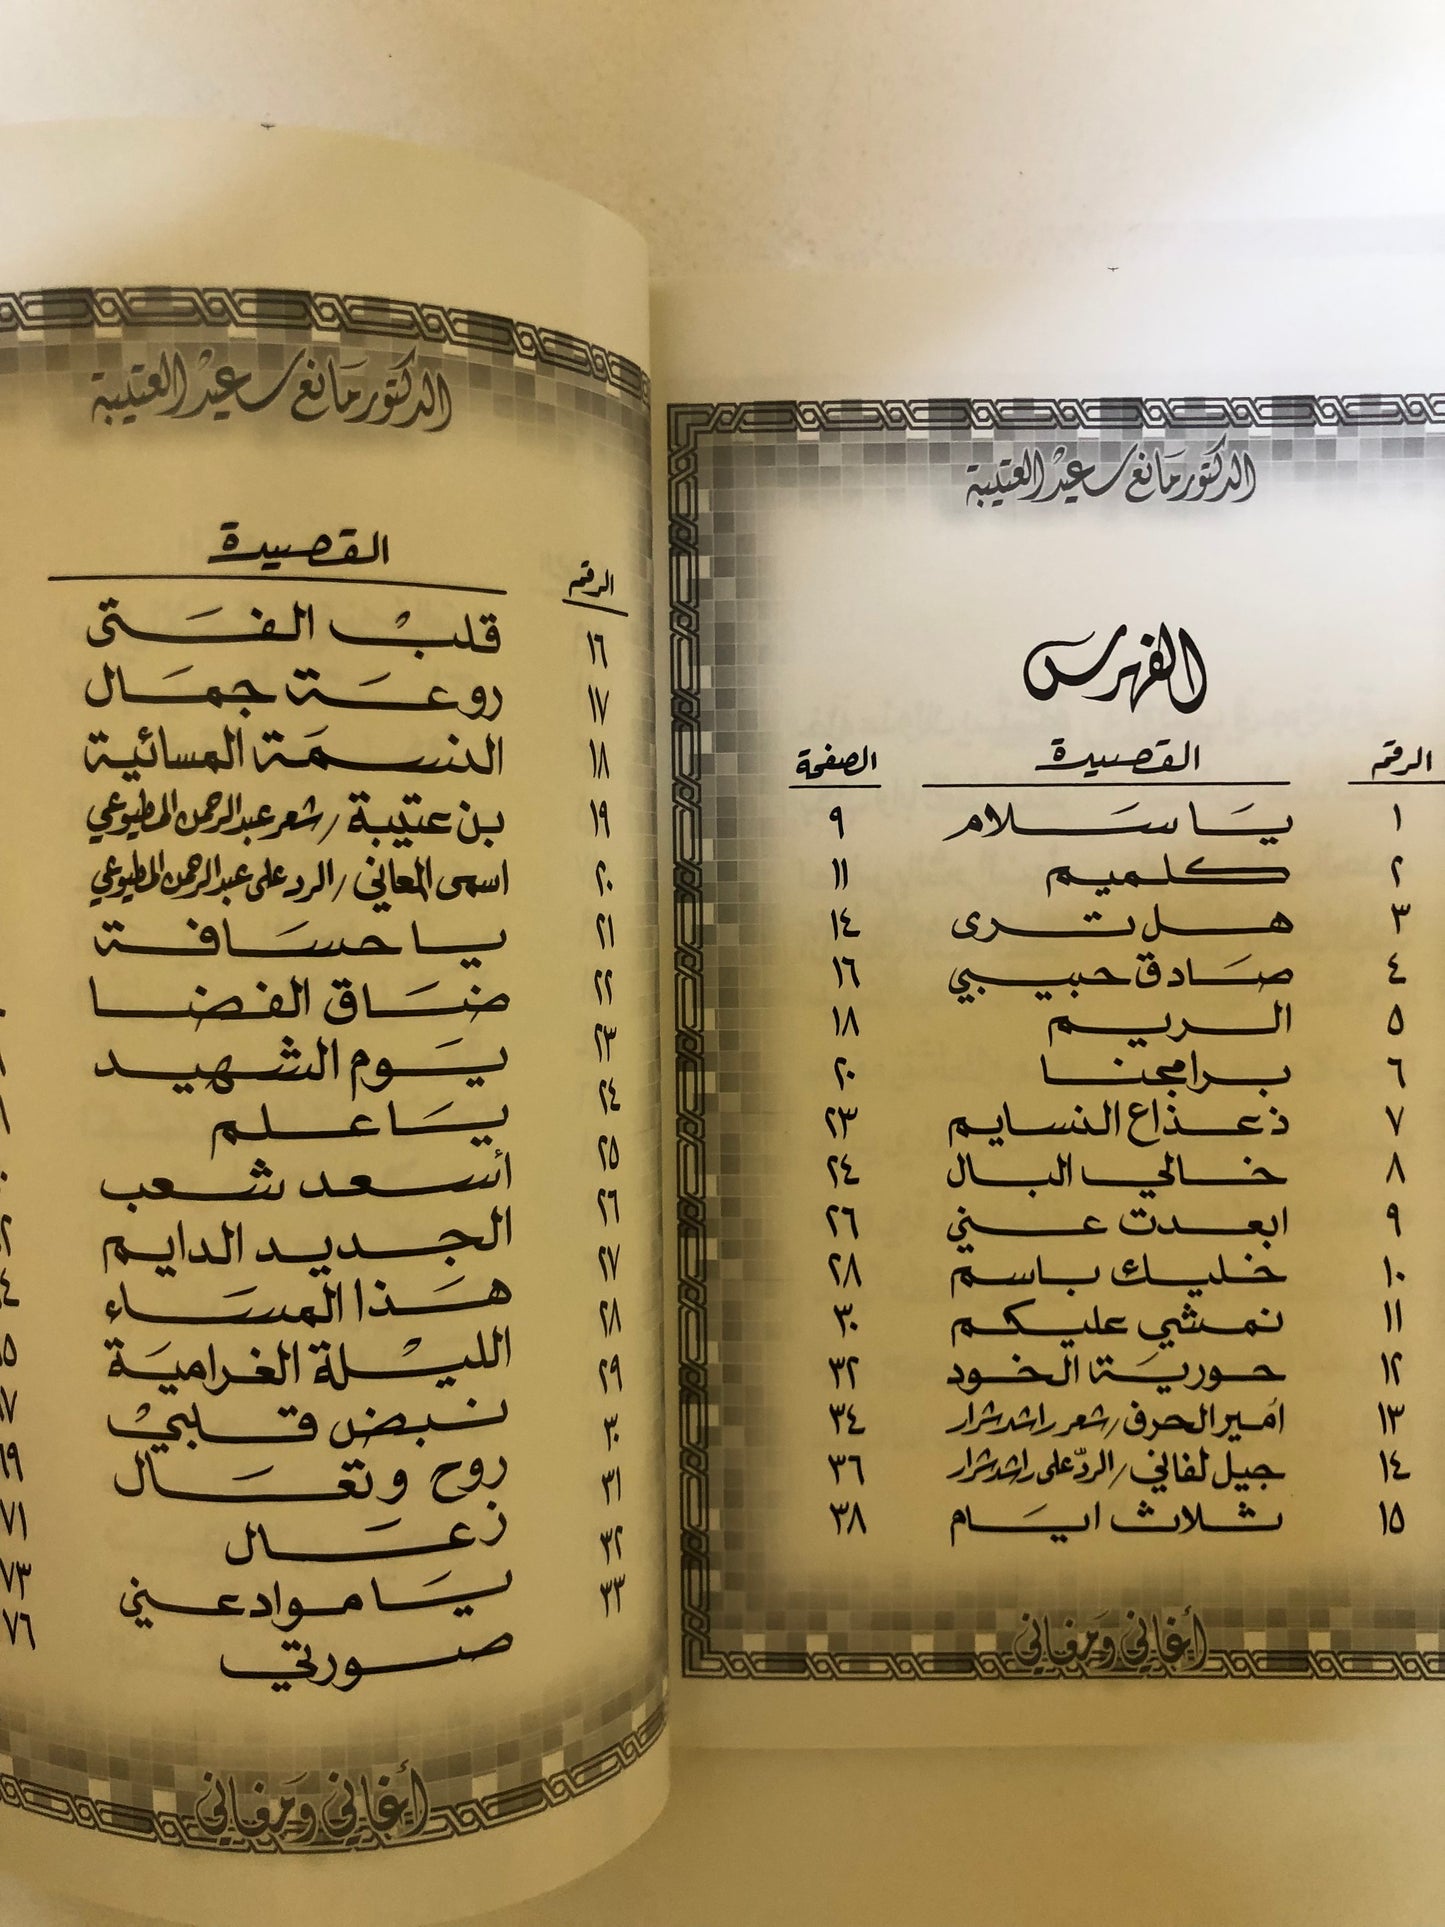 الدكتور مانع سعيد العتيبة
الفهرس
الرقم القصيدة الصفحة
١ يا سلام ٩
٢ كلميم ١١
٣ هل ترى ١٤
٤ صادق حبيبي ١٦
٥ الريم ١٨
٦ برامجنا ٢٠
٧ ذعذاع النسايم ٢٣
٨ خالي البال ٢٤
٩ ابعدت عني ٢٦
١٠ خليك باسم ٢٨
١١ نمشي عليكم ٣٠
١٢ حورية الخود ٣٢
١٣ أمير الحرف / شعر راشد شرار ٣٤
١٤ جيل لفاني / الردّ على راشد شرار ٣٦
١٥ ثلاث ايام ٣٨
أغاني ومغاني
الدكتور مانع سعيد العتيبة
الرقم القصيدة
١٦ قلب الفتى
١٧ روعة جمال
١٨ النسمة المسائية
١٩ بن عتيبة / شعر عبدالرحمن المطيوعي
٢٠ اسمى المعاني / الرد على عبدالرحمن المطيوعي
٢١ يا حسافة
٢٢ ضاق الفضا
٢٣ يوم الشهيد
٢٤ يا علم
٢٥ أسعد شعب
٢٦ الجديد الدايم
٢٧ هذا المساء
٢٨ الليلة الغرامية
٢٩ نبض قلبي
٣٠ روح وتعال
٣١ زعال
٣٢ يا مواد عيني
٣٣ صورتي
٦٧
٦٩
٧١
٧٣
٧٦
أغاني ومغاني